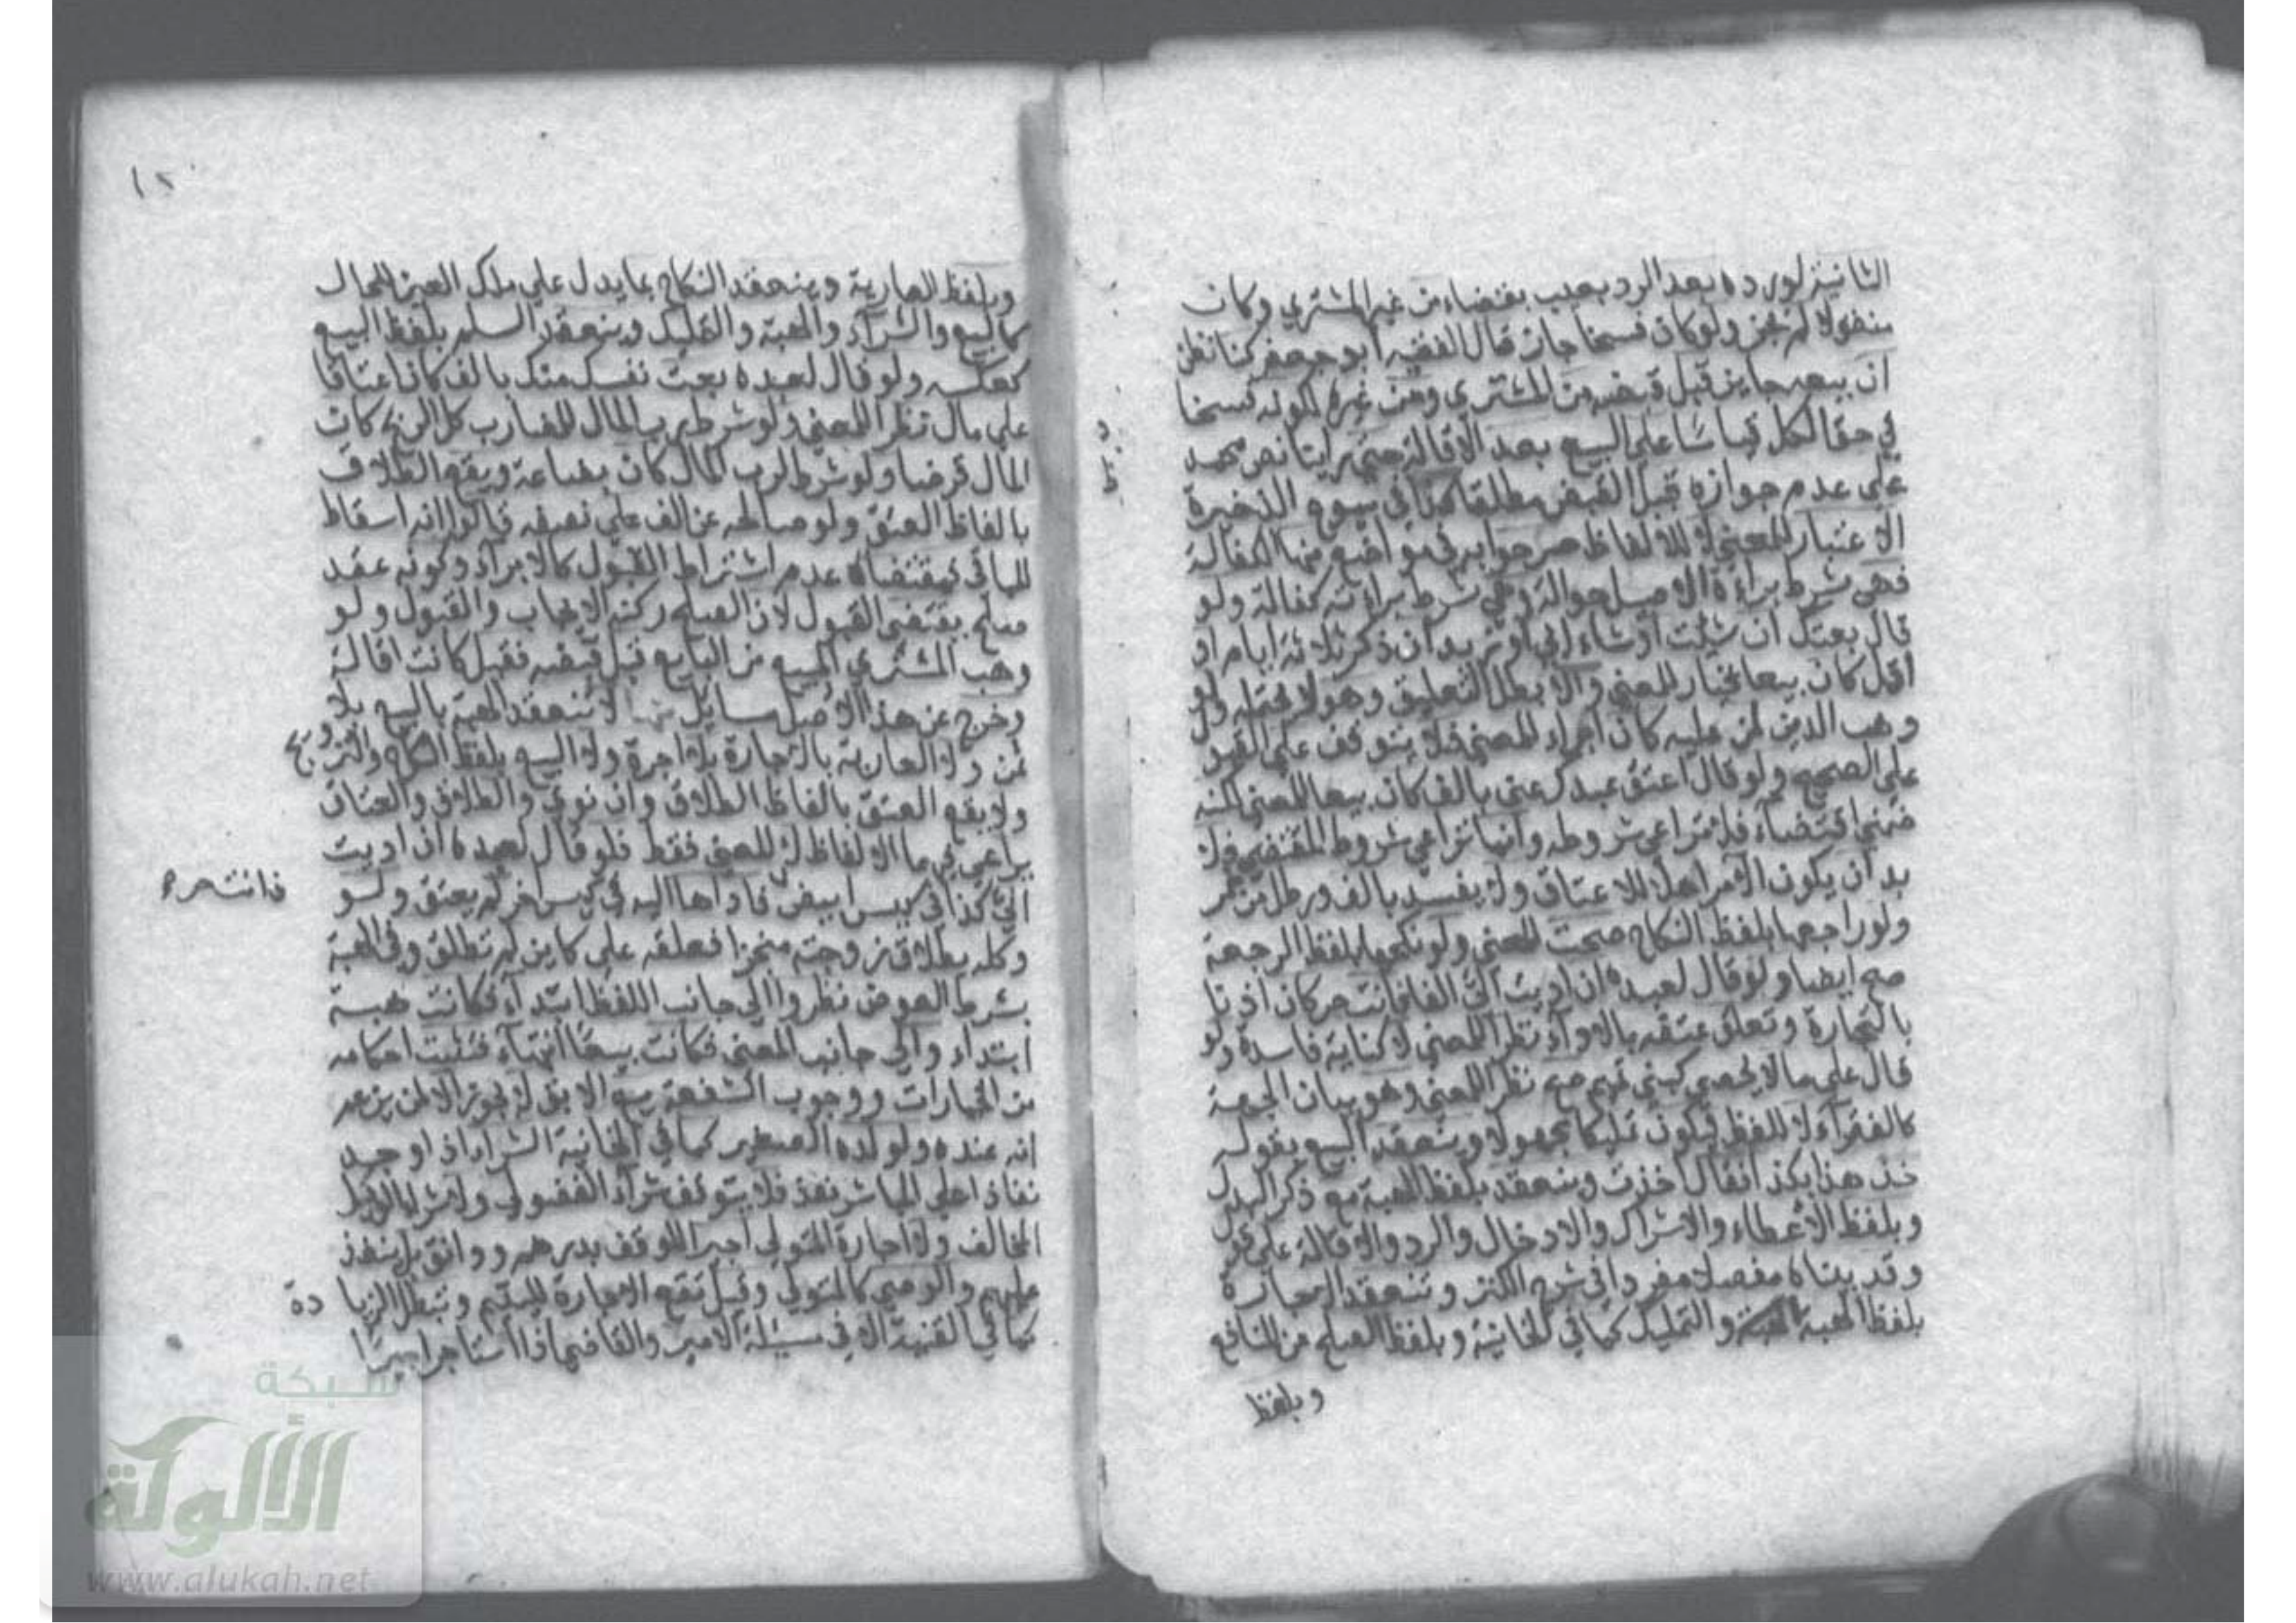 الثانية لو رده بعد الرد بعيب بقضاء من غير المشتري وكان
منقولا لم يجز ولو كان فسخا جاز قال الفقيه أبو جعفر كنا نظن
ان بيعه جايز قبل قبضه من المشتري ومن غيره لكونه فسخا
في حق الكل قياسا على البيع بعد الاقالة حتى رأينا نص محمد
على عدم جوازه قبل القبض مطلقا كذا في بيوع الذخيرة
الاعتبار للمعنى لا للالفاظ صرحوا به في مواضع منها الكفالة
فهي بشرط براءة الاصيل حوالة وهي بشرط براءته كفالة ولو
قال بعتك ان شئت أو شاء ابي أو زيد ان ذكر ثلاثة ايام او
اقل كان بيعا بخيار للمعنى والا بطل التعليق وهو لا يحتمله ولو
وهب الدين لمن عليه كان ابراء للمعنى فلا يتوقف على القبول
على الصحيح ولو قال اعتق عبدك عني بالف كان بيعا للمعنى لكنه
ضمني اقتضاء فلا تراعى شروطه وانما تراعى شروط المقتضى فلا
بد ان يكون الآمر اهلا للاعتاق ولا يفسد بالف ورطل من خمر
ولو راجعها بلفظ النكاح صحت للمعنى ولو نكحها بلفظ الرجعة
صح ايضا ولو قال لعبده ان اديت الي الفا فانت حر كان اذنا
بالتجارة وتعلق عتقه بالاداء نظرا للمعنى لا كتابة فاسدة ولو
قال على ما لا يحصى كبني تميم صح نظرا للمعنى وهو بيان الجهة
كالفقراء لا للفظ فيكون تمليكا لمجهول وينعقد البيع بقوله
خذ هذا بكذا فقال اخذت وينعقد بلفظ الهبة مع ذكر البدل
وبلفظ الاعطاء والاشراك والادخال والرد والاقالة على قول
وقد بيناه مفصلا مفردا في شرح الكنز وتنعقد الاجارة
بلفظ الهبة والتمليك كما في الخانية وبلفظ الصلح من المنافع
وبلفظ
١٢
وبلفظ العارية وينعقد النكاح بما يدل على ملك العين للحال
كالبيع والشراء والهبة والتمليك وينعقد السلم بلفظ البيع
كعكسه ولو قال لعبده بعت نفسك منك بالف كان اعتاقا
على مال نظرا للمعنى ولو شرط رب المال للمضارب كل الربح كان
المال قرضا ولو شرط لرب المال كان بضاعة ويقع الطلاق
بالفاظ العتق ولو صالحه عن الف على نصفه قالوا انه اسقاط
للباقي فمقتضاه عدم اشتراط القبول كالابراء وكونه عقد
صلح يقتضي القبول لان الصلح ركنه الايجاب والقبول ولو
وهب المشتري المبيع من البايع قبل قبضه فقبل كانت اقالة
وخرج عن هذا الاصل مسايل منها لا تنعقد الهبة بالبيع بلا
ثمن ولا العارية بالاجارة بلا اجرة ولا البيع بلفظ النكاح والتزويج
ولا يقع العتق بالفاظ الطلاق وان نوى والطلاق والعتاق
يراعى فيهما الالفاظ لا المعنى فقط فلو قال لعبده ان اديت
الي كذا في كيس ابيض فاداها اليه في كيس اخر لم يعتق ولو
فانت حر
وكله بطلاق زوجته منجزا فعلقه على كاين لم تطلق وفي الهبة
بشرط العوض نظروا الى جانب اللفظ ابتداء فكانت هبة
ابتداء والى جانب المعنى فكانت بيعا انتهاء فتثبت احكامه
من الخيارات ووجوب الشفعة بيع الابق لا يجوز الا لمن يزعم
انه عنده ولولده الصغير كما في الخانية الشراء اذا وجد
نفاذا على المباشر نفذ فلا يتوقف شراء الفضولي ولا شراء الوكيل
المخالف ولا اجارة المتولي اجيرا للوقف بدرهم ودانق بل ينفذ
عليهم والوصي كالمتولي وقيل تقع الاجارة لليتيم وتبطل الزيادة
كما في القنية الا في مسئلة الامير والقاضي اذا استاجر اجيرا
شبكة
الألوكة
www.alukah.net